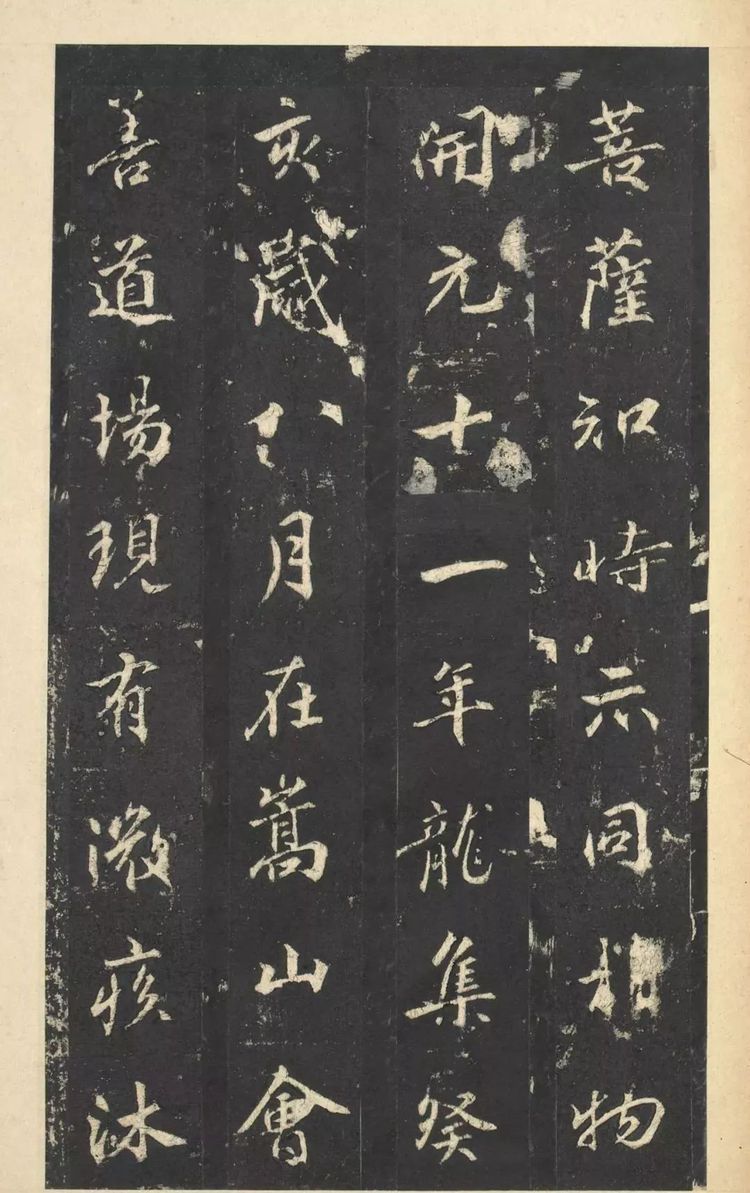 菩薩知時示同物
開元十一年龍集癸
亥歲八月在嵩山會
善道場現有微疾沐